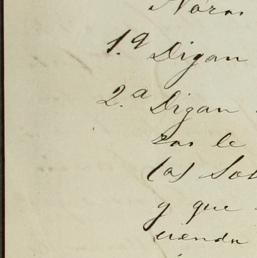 1.ª Digan
2.ª Digan
ras le
las Sol
y que
uendu